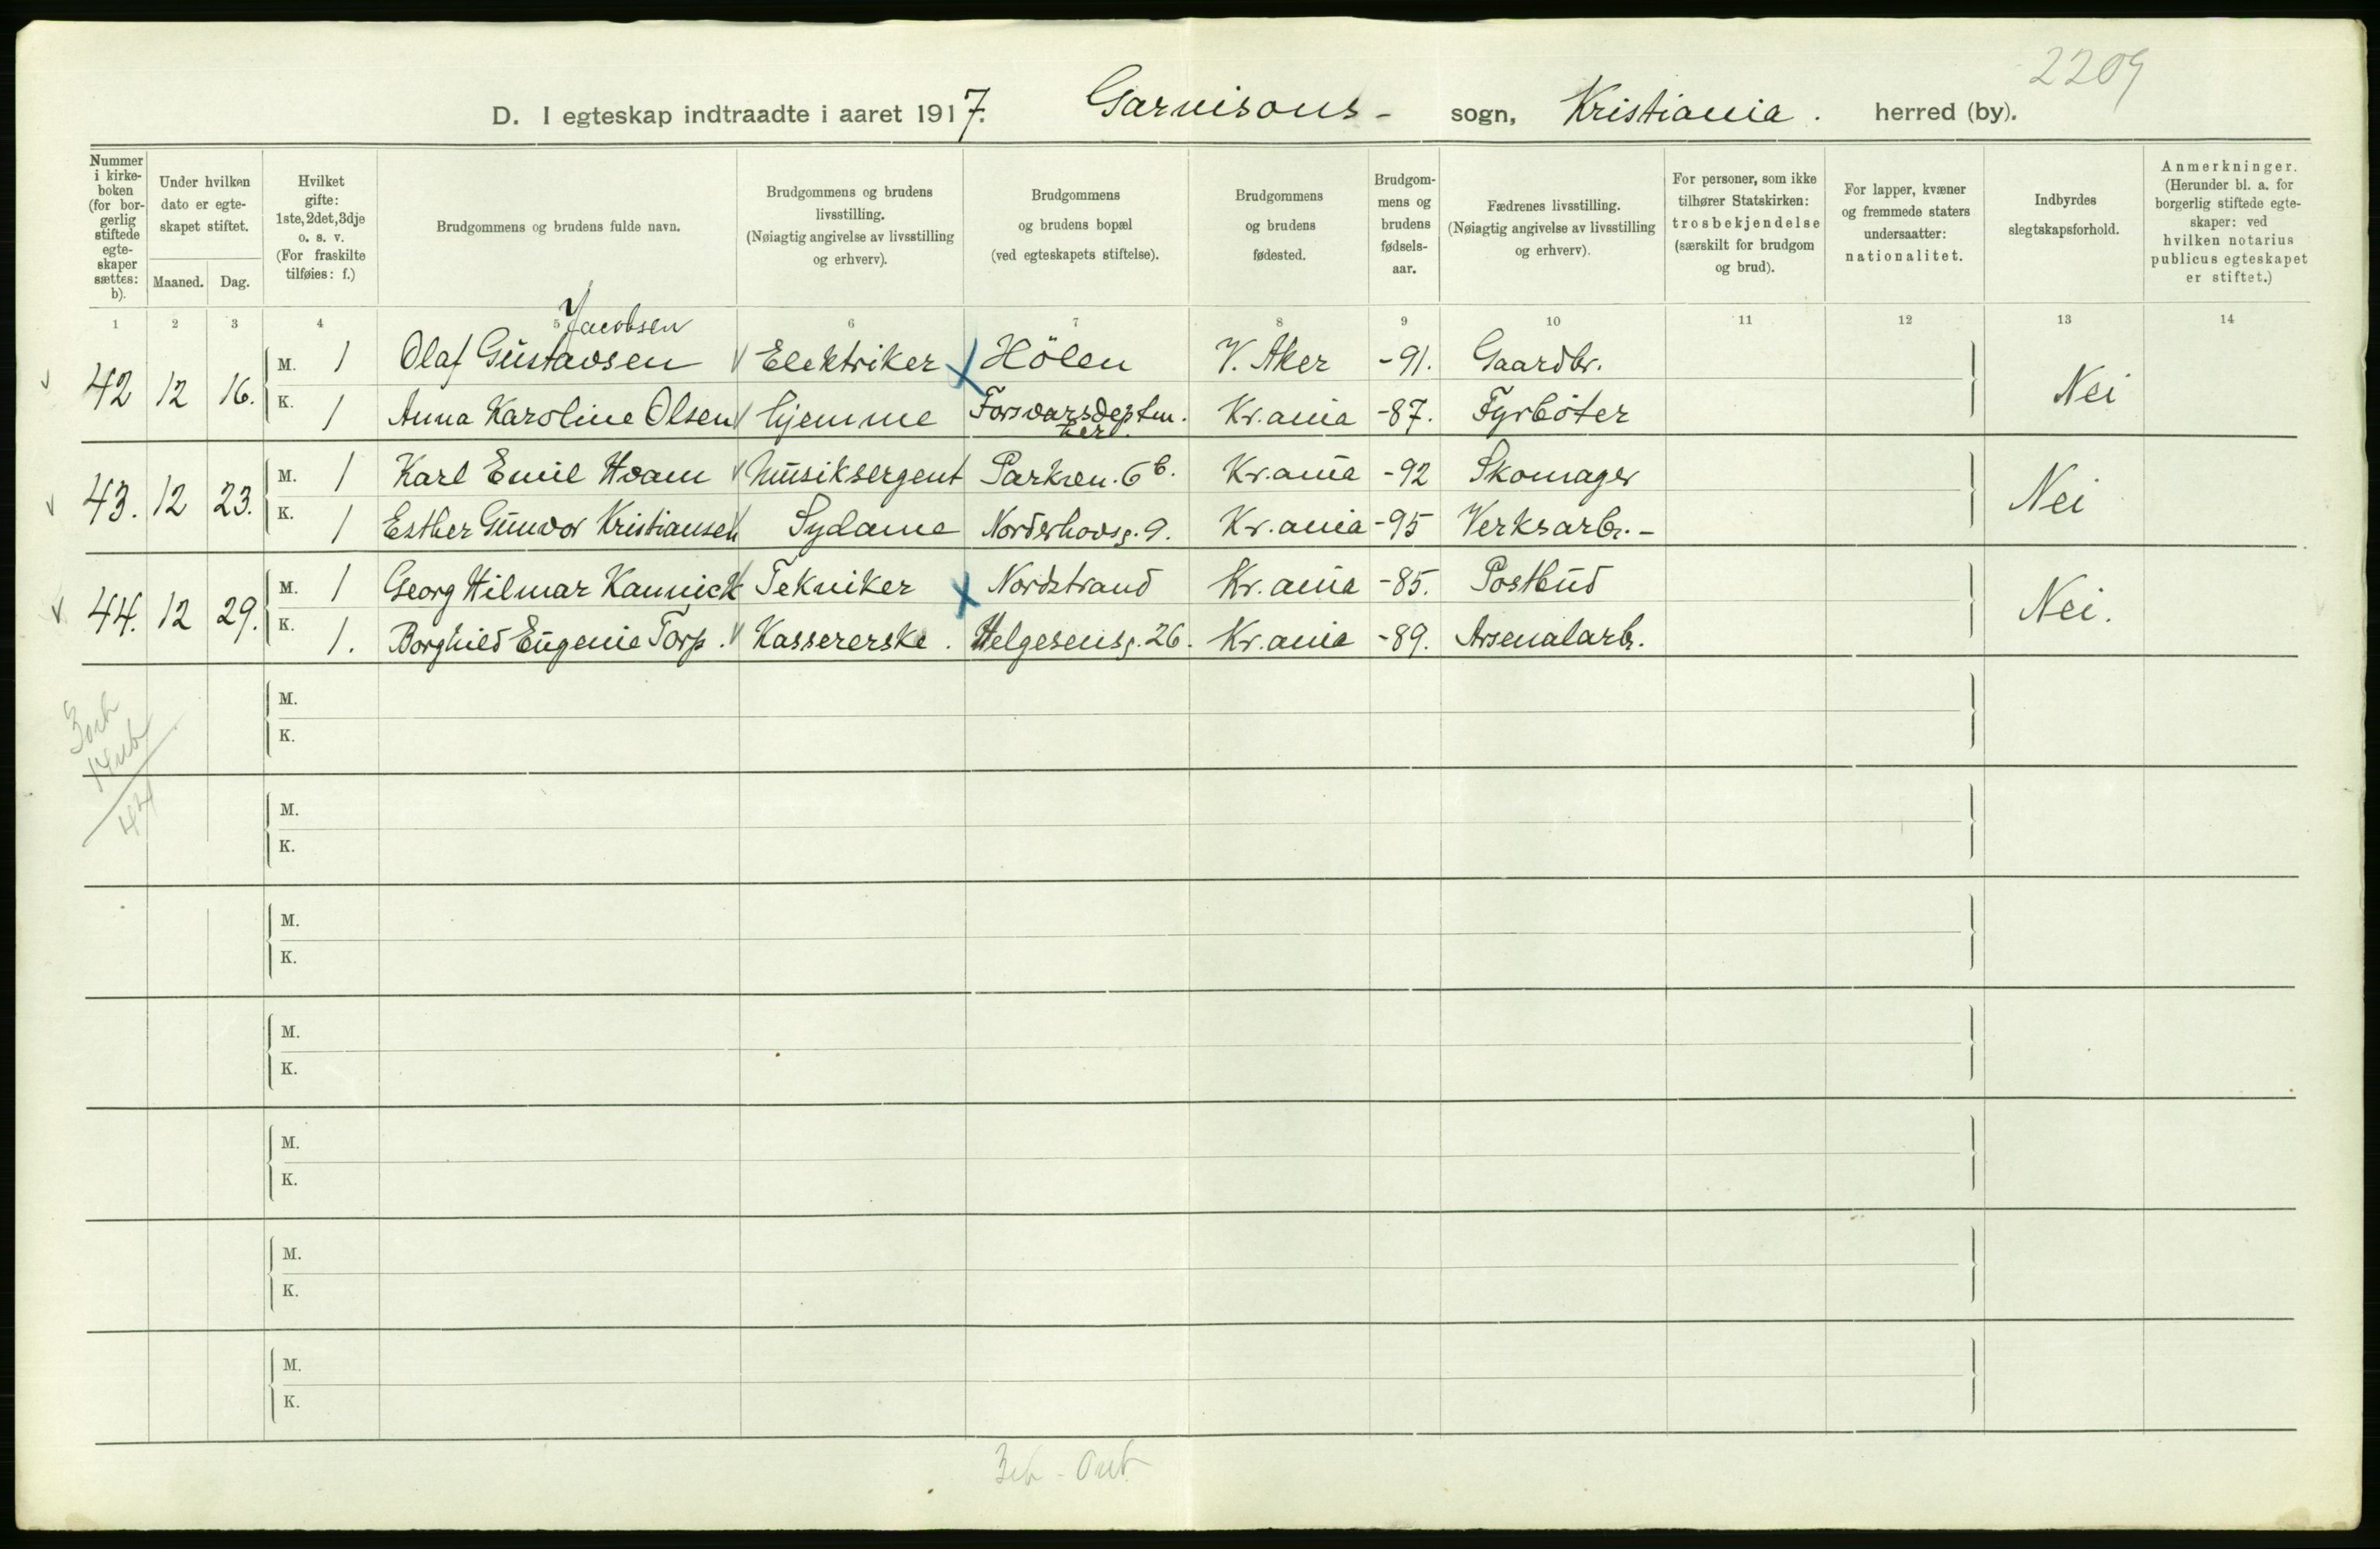 2209
D. I egteskap indtraadte i aaret 1917. Garnisons- sogn, Kristiania. herred (by).
Nummer i kirkeboken (for borgerlig stiftede egteskaper sættes: b).
Under hvilken dato er egteskapet stiftet.
Maaned. Dag.
Hvilket gifte: 1ste, 2det, 3dje o. s. v. (For fraskilte tilføies: f.)
Brudgommens og brudens fulde navn.
Brudgommens og brudens livsstilling. (Nøiagtig angivelse av livsstilling og erhverv).
Brudgommens og brudens bopæl (ved egteskapets stiftelse).
Brudgommens og brudens fødested.
Brudgommens og brudens fødselsaar.
Fædrenes livsstilling. (Nøiagtig angivelse av livsstilling og erhverv).
For personer, som ikke tilhører Statskirken: trosbekjendelse (særskilt for brudgom og brud).
For lapper, kvæner og fremmede staters undersaatter: nationalitet.
Indbyrdes slegtskapsforhold.
Anmerkninger. (Herunder bl. a. for borgerlig stiftede egteskaper: ved hvilken notarius publicus egteskapet er stiftet.)
1 2 3 4 5 6 7 8 9 10 11 12 13 14
Jacobsen
42 12 16. M. 1 Olaf Gustavsen Elektriker Hölen V. Aker -91. Gaardbr. Nei
K. 1 Anna Karoline Olsen hjemme Forsvarsdeptm. Kr.ania -87. Fyrböter
43. 12 23. M. 1 Karl Emil Hvam Musiksergent Parkven. 6b. Kr.ania -92 Skomager Nei
K. 1 Esther Gunvor Kristiansen Sydame Norderhovsg. 9. Kr.ania -95 Verksarb. -
44. 12 29. M. 1 Georg Hilmar Kannick Tekniker Nordstrand Kr.ania -85. Postbud Nei.
K. 1. Borghild Eugenie Torp. Kassererske. Helgesensg. 26. Kr.ania -89. Arsenalarb.
M.
K.
M.
K.
M.
K.
M.
K.
M.
K.
M.
K.
M.
K.